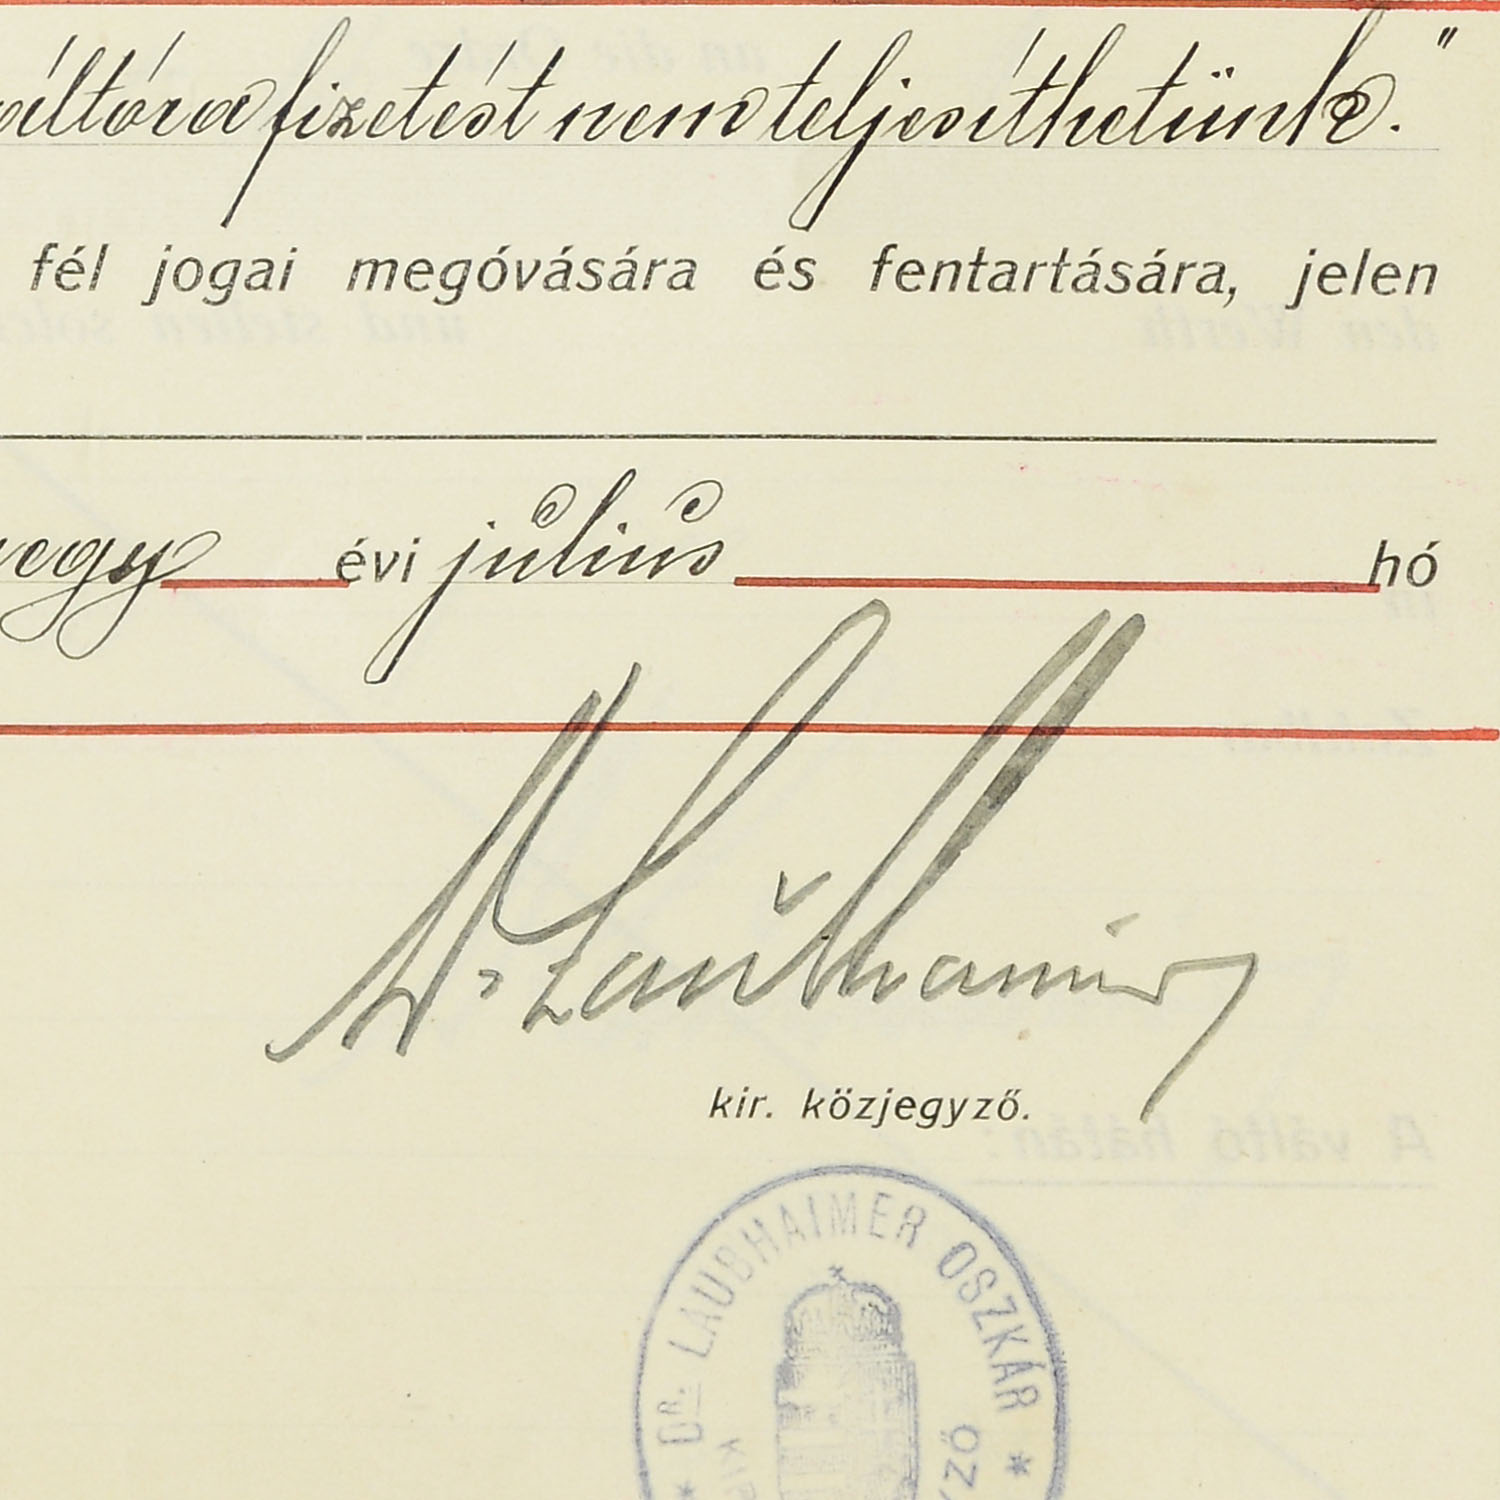 váltóra fizetést nem teljesíthetünk."
fél jogai megóvására és fentartására, jelen
egy évi július hó
Dr Laubhaimer
kir. közjegyző.
* DR. LAUBHAIMER OSZKÁR *
KIR